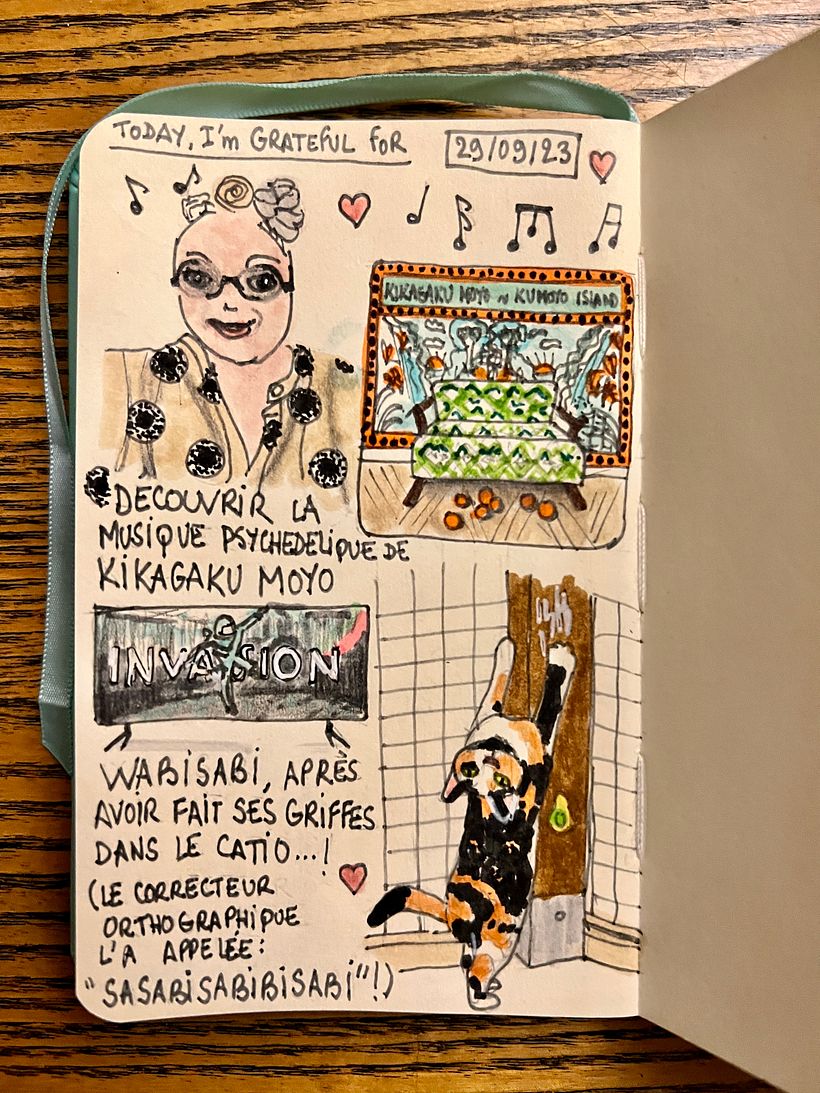 TODAY, I'm GRATEFUL FOR
29/09/23
KIKAGAKU MOYO ~ KUMOYO ISLAND
DECOUVRIR LA
MUSIQUE PSYCHEDELIQUE DE
KIKAGAKU MOYO
INVASION
WABISABI, APRÈS
AVOIR FAIT SES GRIFFES
DANS LE CATIO...!
(LE CORRECTEUR
ORTHOGRAPHIQUE
L'A APPELÉE:
"SASABISABIBISABI"!)